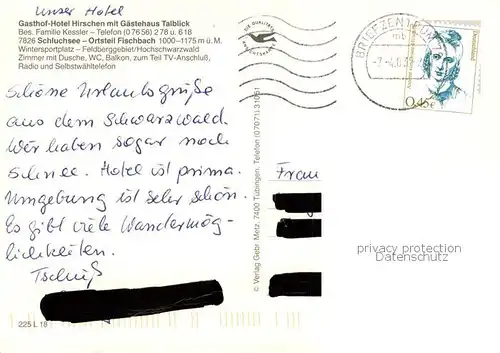 Unser Hotel
Gasthof-Hotel Hirschen mit Gästehaus Talblick
Bes. Familie Kessler – Telefon (07656) 278 u. 618
7826 Schluchsee – Ortsteil Fischbach 1000–1175 m ü. M.
Wintersportplatz – Feldberggebiet/Hochschwarzwald
Zimmer mit Dusche, WC, Balkon, zum Teil TV-Anschluß,
Radio und Selbstwähltelefon
Schöne Urlaubsgrüße
aus dem Schwarzwald.
Wir haben sogar noch
Schnee. Hotel ist prima.
Umgebung ist sehr schön.
Es gibt viele Wandermög-
lichkeiten.
Tschüß
225 L 18
© Verlag Gebr. Metz, 7400 Tübingen, Telefon (07071) 31051
DIE QUALITÄTS
ANSICHTSKARTE
BRIEFZENTRUM
mb
0,45€
Deutschland
Frau
privacy protection
Datenschutz